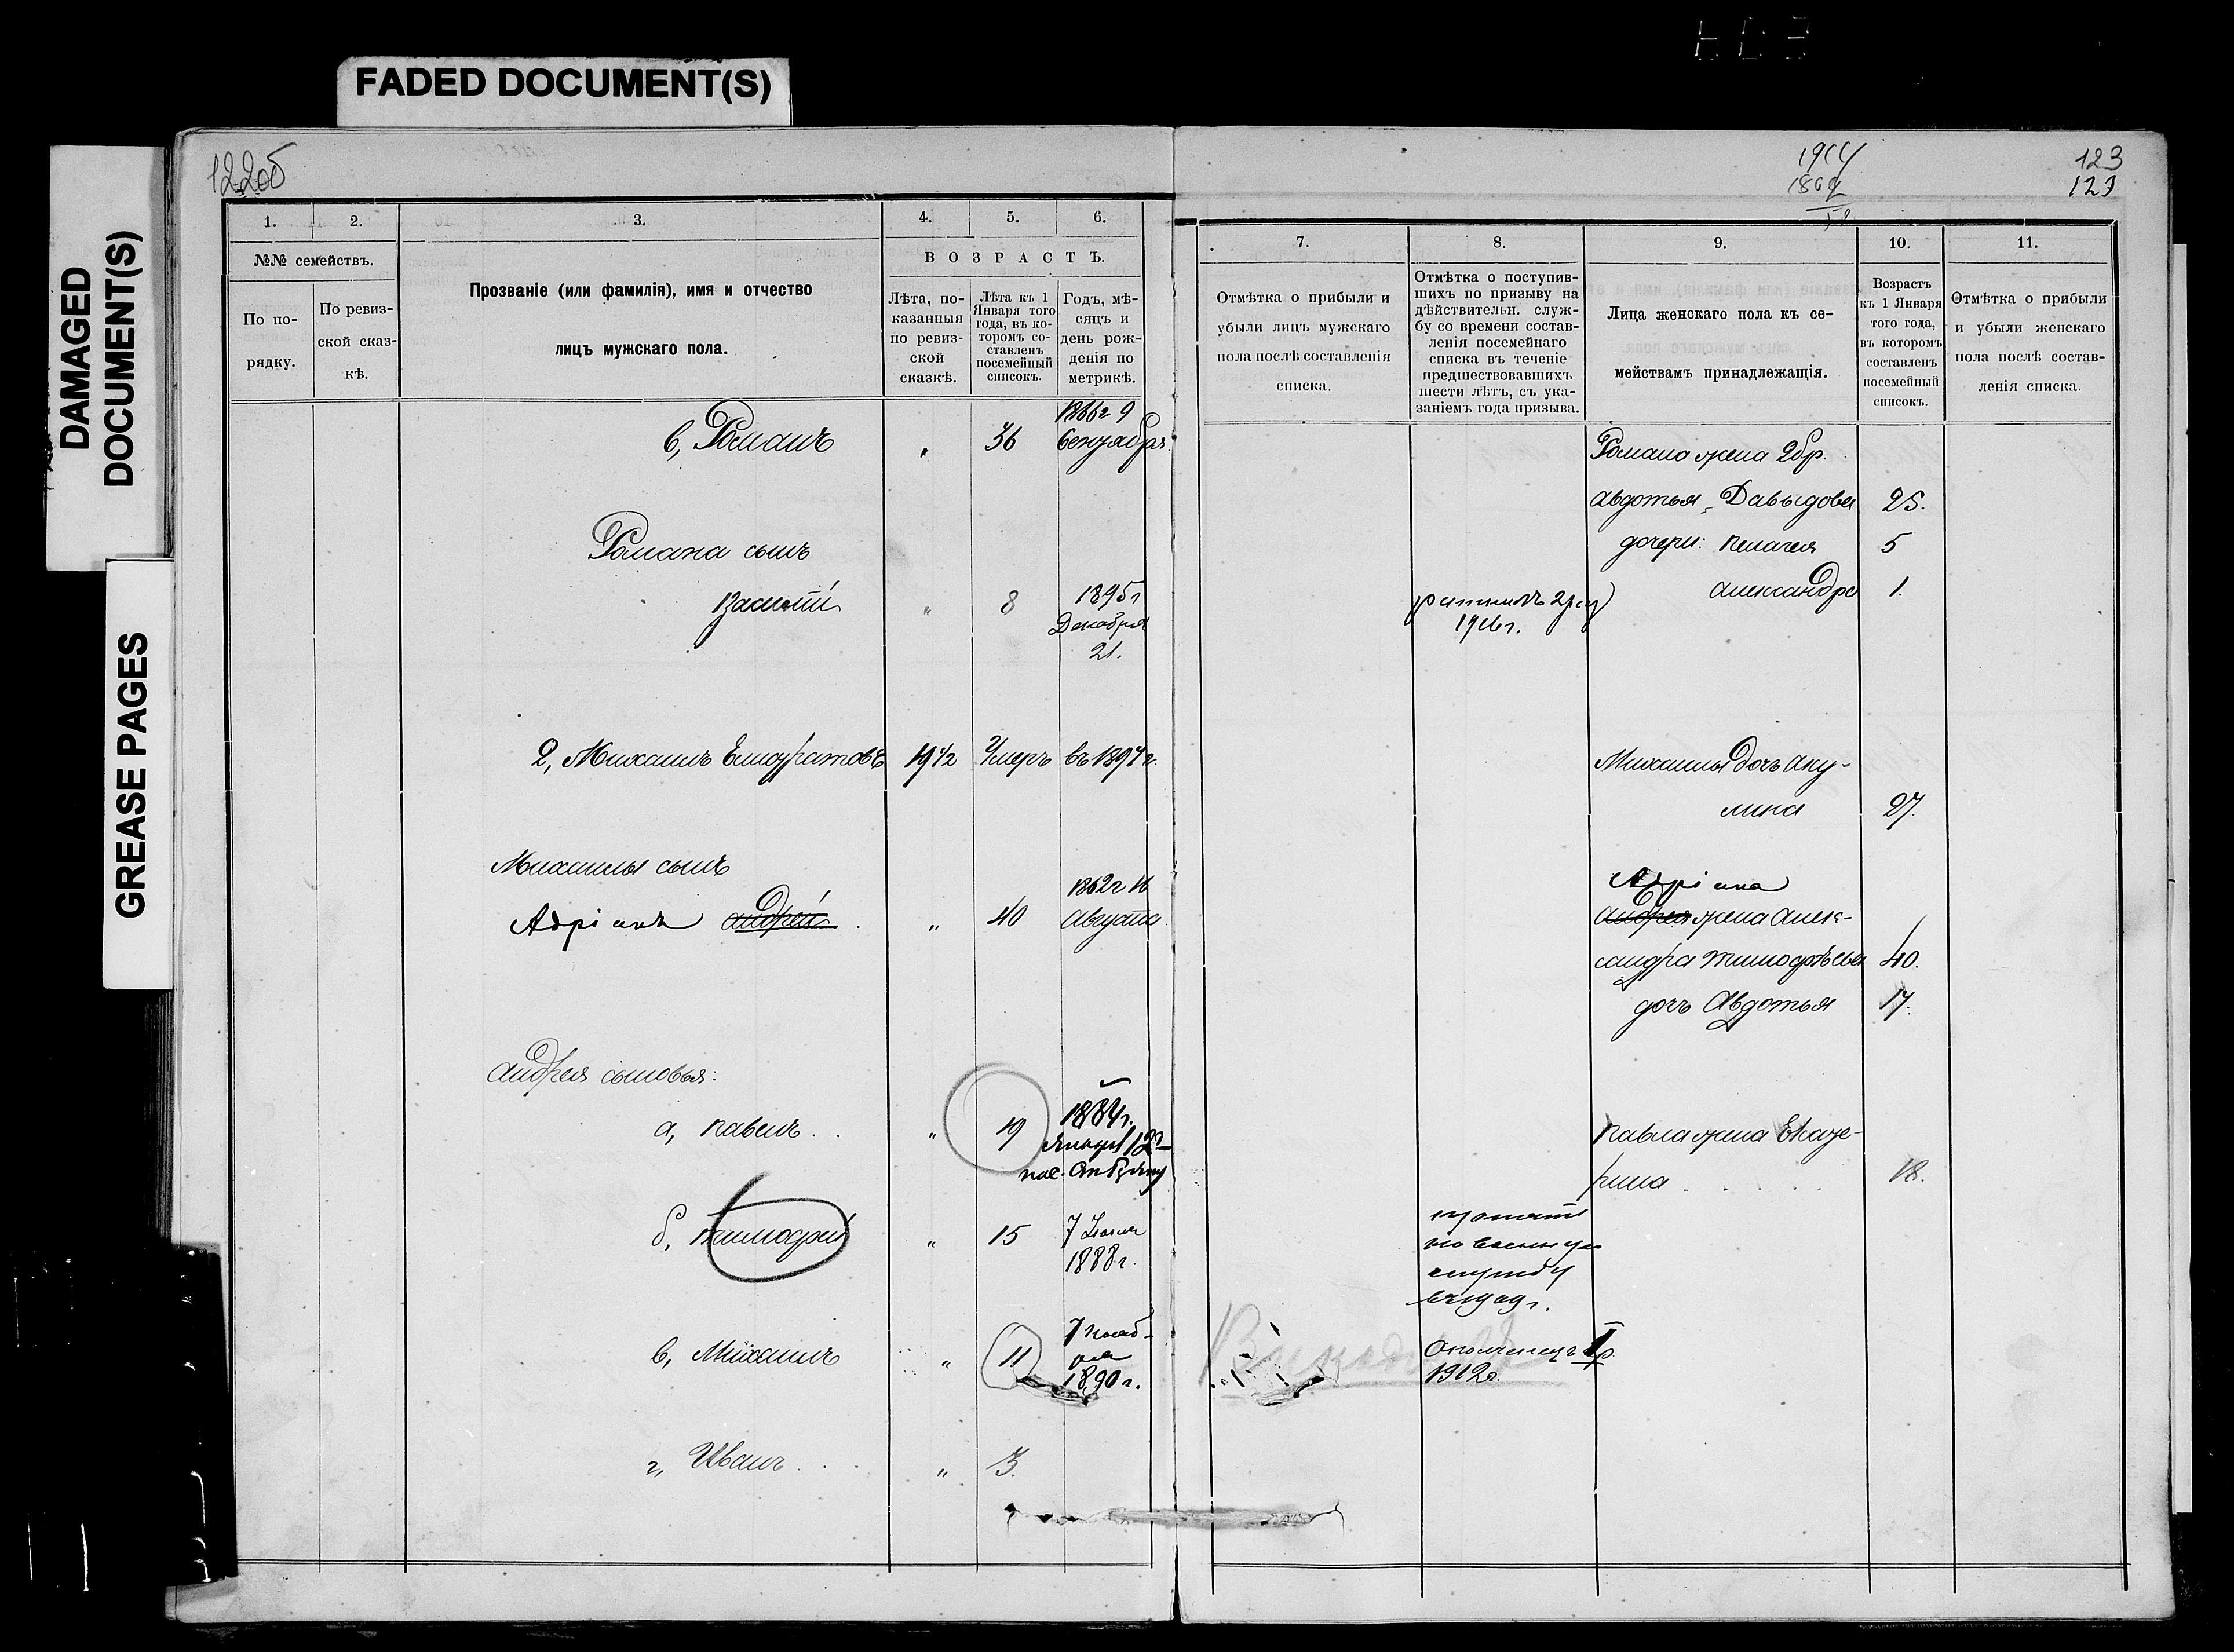 FADED DOCUMENT(S)
DAMAGED
DOCUMENT(S)
GREASE PAGES
122об
1. 2. 3. 4. 5. 6.
№№ семействъ.
По по-
рядку.
По ревиз-
ской сказ-
кѣ.
Прозваніе (или фамилія), имя и отчество
лицъ мужскаго пола.
ВОЗРАСТЪ.
Лѣта, по-
казанныя
по ревиз-
ской
сказкѣ.
Лѣта къ 1
Января того
года, въ ко-
торомъ со-
ставленъ
посемейный
списокъ.
Годъ, мѣ-
сяцъ и
день рож-
денія по
метрикѣ.
1866 г 9
в, Романъ " 36 Сентября
Романа сынъ
Василій " 8 1895 г
Декабря
21.
2, Михаилъ Елизаратовъ 19 1/2 Умеръ въ 1897 г.
Михаила сынъ
1862 г 16
Адріанъ Андрей " 40 Августа
Андрея сыновья:
а, Павелъ " 19 1884 г.
Января 12
б, Тимофей " 15 7 Іюня
1888 г.
в, Михаилъ " 11 7 Нояб-
ря
1890 г.
г, Иванъ " 3.
1914
1869
123
123
7. 8. 9. 10. 11.
Отмѣтка о прибыли и
убыли лицъ мужскаго
пола послѣ составленія
списка.
Отмѣтка о поступив-
шихъ по призыву на
дѣйствительн. служ-
бу со времени состав-
ленія посемейнаго
списка въ теченіе
предшествовавшихъ
шести лѣтъ, съ ука-
заніемъ года призыва.
Лица женскаго пола къ се-
мействамъ принадлежащія.
Возрастъ
къ 1 Января
того года,
въ которомъ
составленъ
посемейный
списокъ.
Отмѣтка о прибыли
и убыли женскаго
пола послѣ состав-
ленія списка.
Романа жена 2 бр.
Авдотья Давыдова 25.
дочери: Пелагея 5
Александра 1.
ратникъ
1916 г.
Михаила дочь Аку-
лина 27.
Адріана
Андрея жена Алек-
сандра Тимофѣева 40.
дочь Авдотья 17.
Павла жена Екате-
рина 18.
принятъ
на военную
службу
в 1909 г.
Ополченецъ I р.
1912 г.